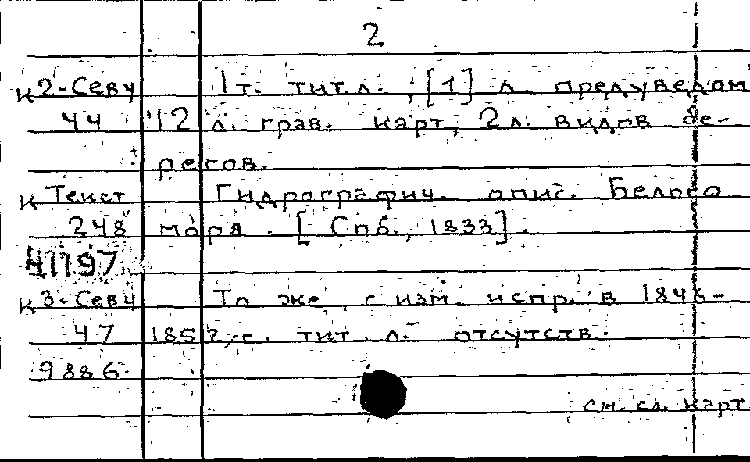 2
к 2-Севч 1 т. тит.л., [1] л. предуведом
44 12 л. грав. карт, 2 л. видов бе-
регов.
к Текст Гидрографич. опис. Белого
248 моря. [Спб., 1833].
41197
к 3-Севч То же, с изм. испр. в 1846-
47 1852 г. тит. л. отсутств.
9886
см. сл. карт